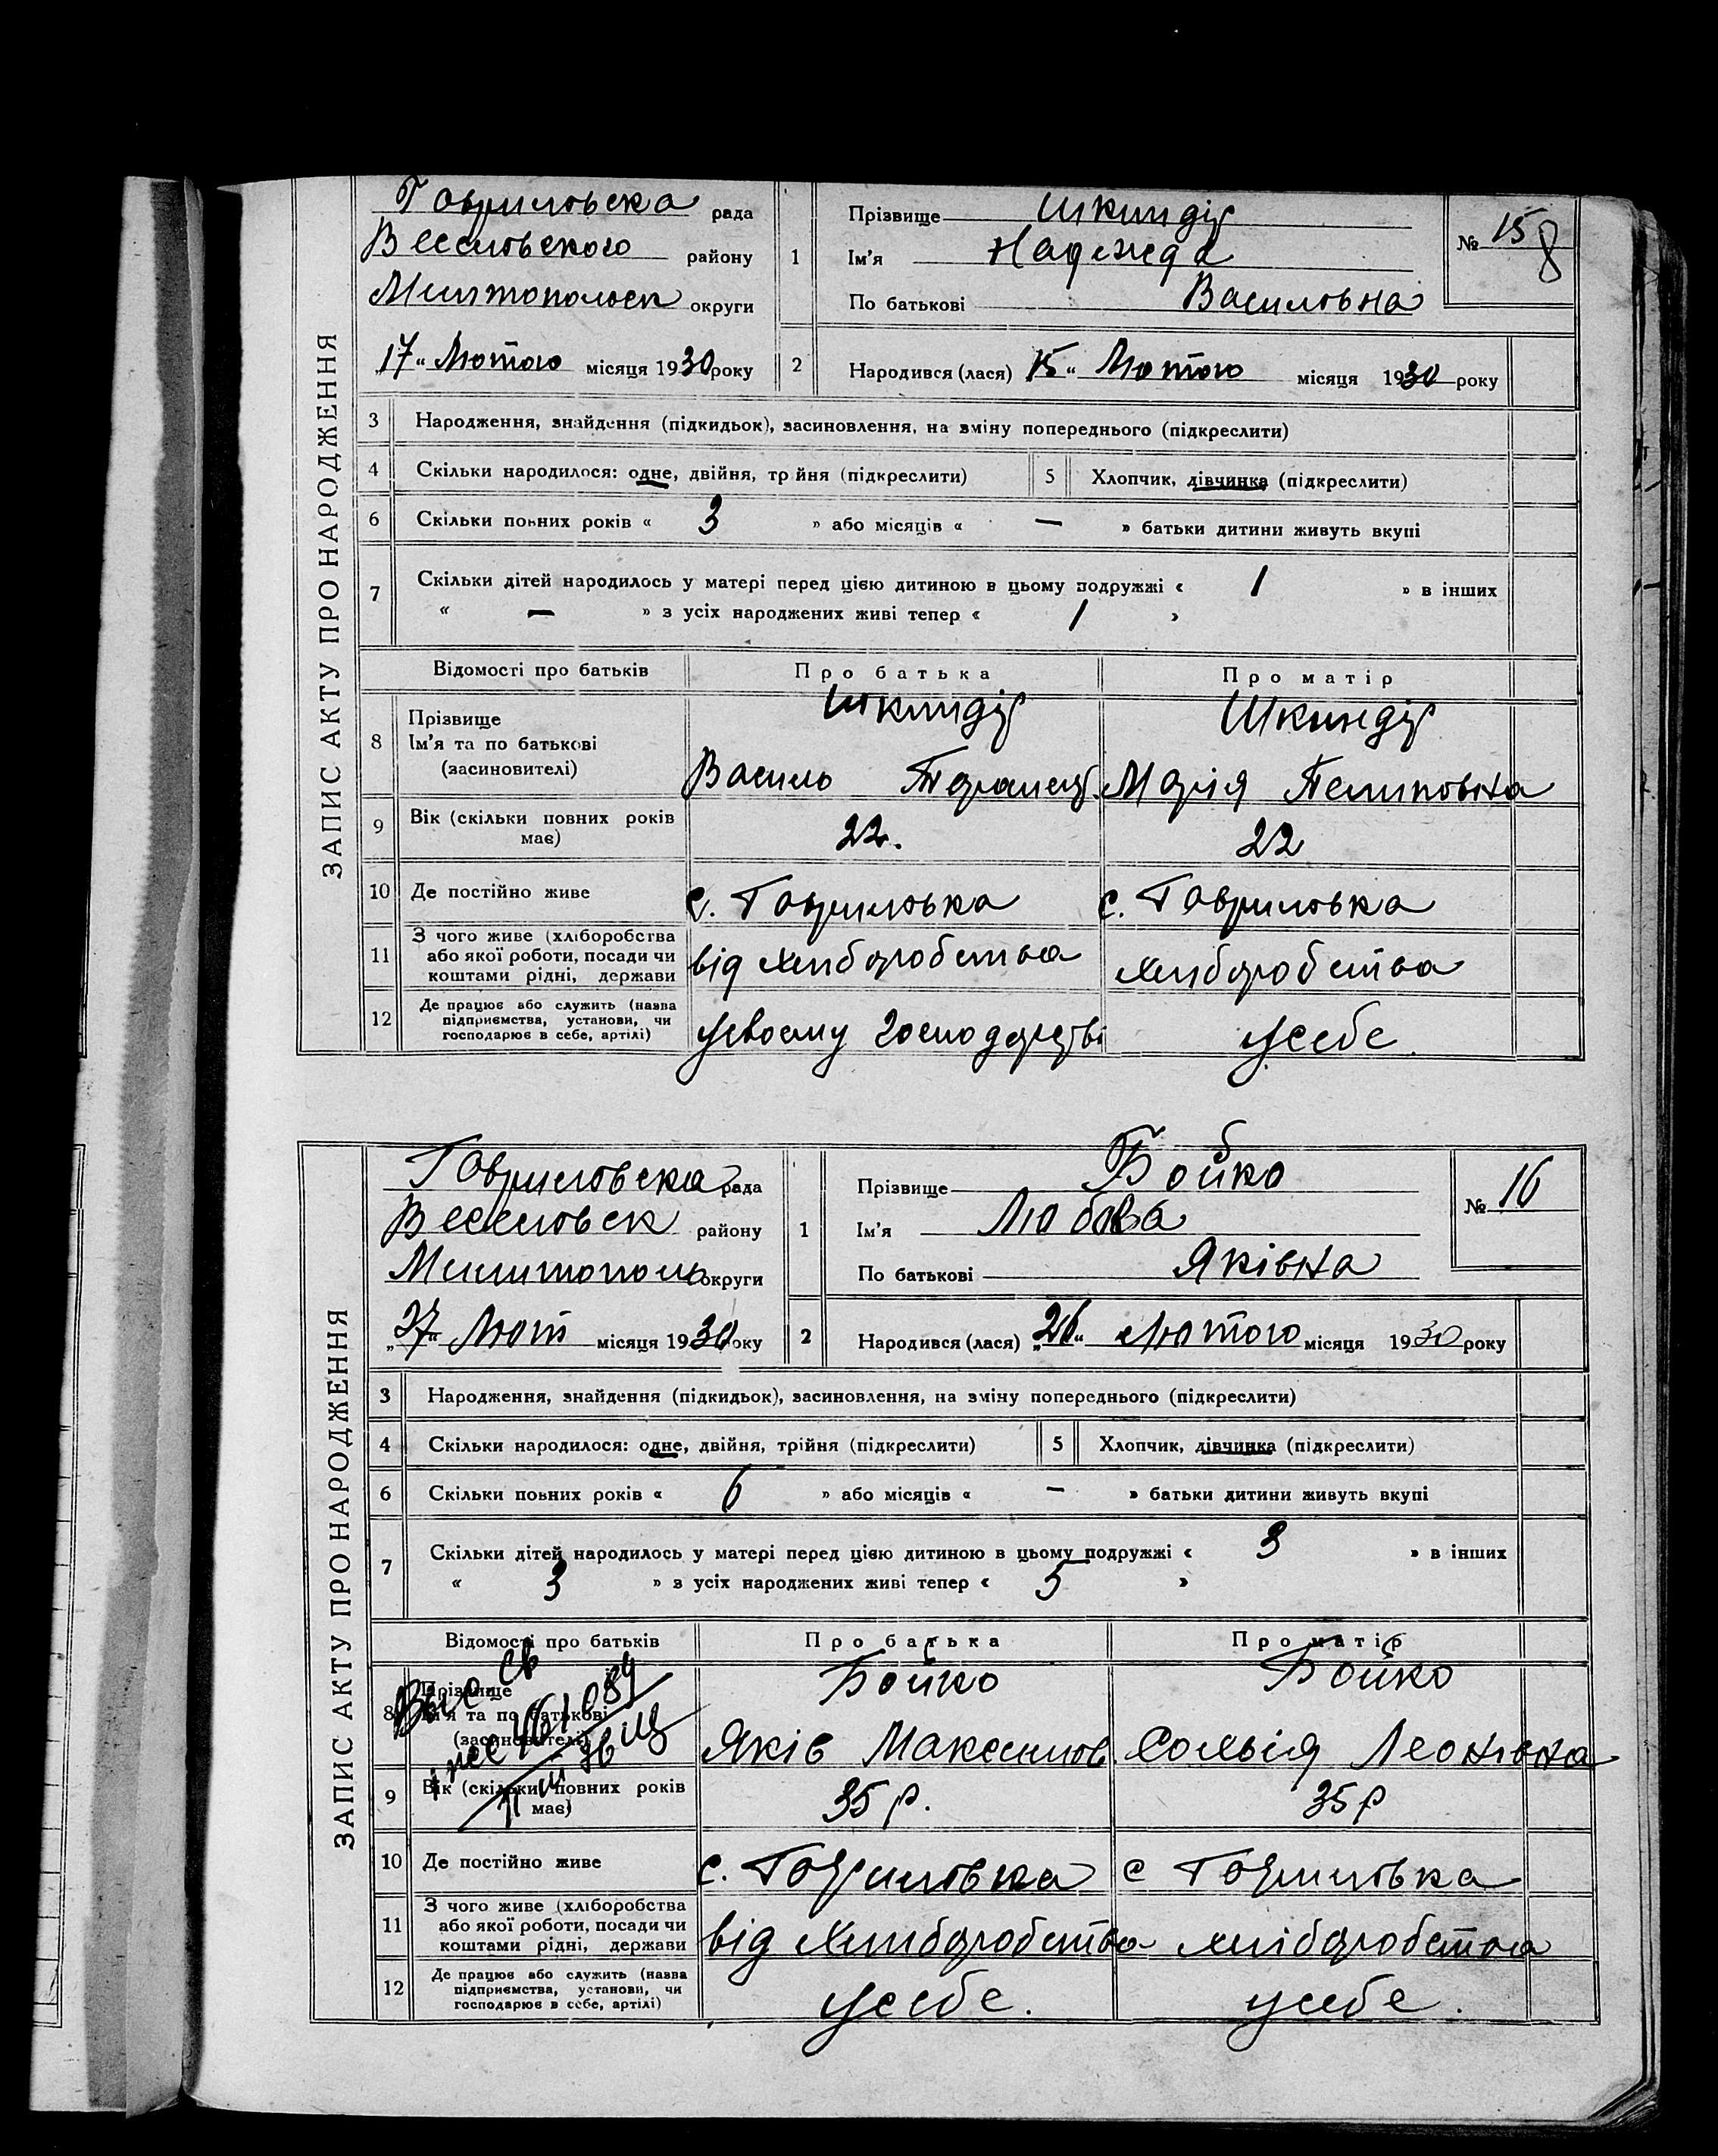 ЗАПИС АКТУ ПРО НАРОДЖЕННЯ
Гавриловська рада
Веселовського району
Милтопольск округи
17 " Лютого місяця 1930 року
1 Прізвище Шкиндір
Ім'я Надежда
По батькові Василовна
№ 15
8
2 Народився (лася) 15 " Лютого місяця 1930 року
3 Народження, знайдення (підкидьок), засиновлення, на зміну попереднього (підкреслити)
4 Скільки народилося: одне, двійня, трійня (підкреслити) 5 Хлопчик, дівчинка (підкреслити)
6 Скільки повних років « 3 » або місяців « — » батьки дитини живуть вкупі
7 Скільки дітей народилось у матері перед цією дитиною в цьому подружжі « 1 » в інших
« — » з усіх народжених живі тепер « 1 »
Відомості про батьків Про батька Про матір
8 Прізвище Ім'я та по батькові (засиновителі)
Шкиндір Шкиндір
Василь Марія Пелиповна
9 Вік (скільки повних років має) 22. 22
10 Де постійно живе с. Гавриловка с. Гавриловка
11 З чого живе (хліборобства або якої роботи, посади чи коштами рідні, держави від хлиборобства хлиборобства
12 Де працює або служить (назва підприємства, установи, чи господарює в себе, артілі) усвому господарстві усебе.
ЗАПИС АКТУ ПРО НАРОДЖЕННЯ
Гавриловська рада
Веселовськ району
Милитополь округи
„27" Лют місяця 1930 року
1 Прізвище Бойко
Ім'я Любова
По батькові Яківна
№ 16
2 Народився (лася) „26" лютого місяця 1930 року
3 Народження, знайдення (підкидьок), засиновлення, на зміну попереднього (підкреслити)
4 Скільки народилося: одне, двійня, трійня (підкреслити) 5 Хлопчик, дівчинка (підкреслити)
6 Скільки повних років « 6 » або місяців « — » батьки дитини живуть вкупі
7 Скільки дітей народилось у матері перед цією дитиною в цьому подружжі « 3 » в інших
« 3 » з усіх народжених живі тепер « 5 »
Відомості про батьків Про батька Про матір
8 Прізвище Ім'я та по батькові (засиновителі)
Бойко Бойко
Яків Максимов. Сольвія Леонівна
9 Вік (скільки повних років має) 35 р. 35 р
10 Де постійно живе с. Гавриловка с Гавриловка
11 З чого живе (хліборобства або якої роботи, посади чи коштами рідні, держави від хлиборобства хліборобства
12 Де працює або служить (назва підприємства, установи, чи господарює в себе, артілі) усебе. усебе.